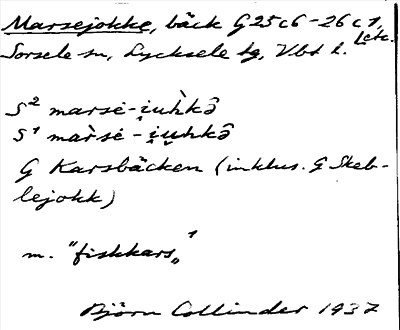 Marsejokke, bäck G25c6-26c1,
Sorsele sn, Lycksele lg, Vbd l. Lck.
S² marsé-i̯uh̀kɔ̂
S¹ mar̀sé-i̯u̯hkɔ̂
G Karsbäcken (inklus. G Skeb-
lejokk)
m. "fiskkars„¹
Björn Collinder 1937